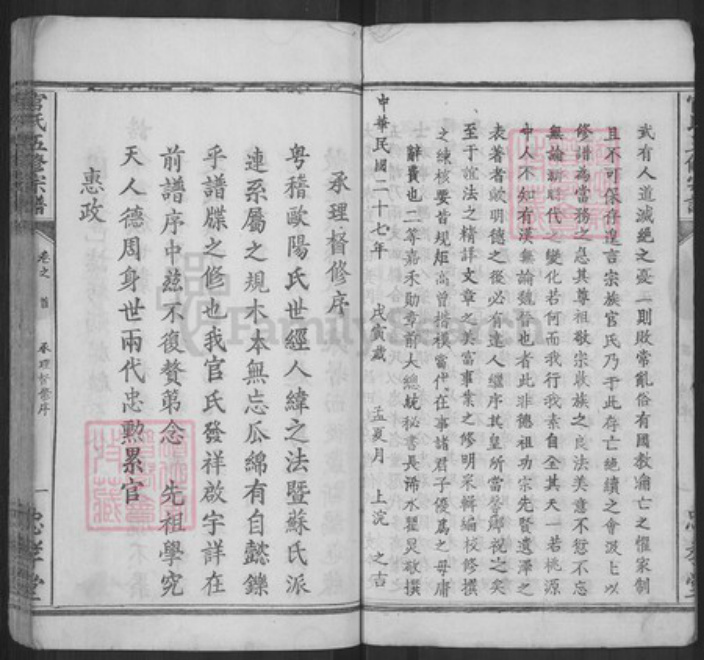 武有人道滅絕之憂一則敗常亂俗有國教淪亡之懼家制
且不可保存遑言宗族官氏乃于此存亡絕續之會汲汲以
修譜為當務之急其尊祖敬宗收族之良法美意不愆不忘
無論時代之變化若何而我行我素自全其天一若桃源
中人不知有漢無論魏晉也者此非德祖功宗先賢遺澤之
表著者歟明德之後必有達人繼序其皇所當祝之矣
至于誼法之精詳文章之美富事業之修明采輯編校修撰
之練核要皆規矩高曾楷模當代在事諸君子優為之毋庸
辭費也二等嘉禾勳章前大總統秘書長浠水瞿炅敬撰
中華民國二十七年 戊寅歲 孟夏月 上浣 之吉
承理督修序
粵稽歐陽氏世經人緯之法暨蘇氏派
連系屬之規木本無忘瓜綿有自懿鑠
乎譜牒之修也我官氏發祥啟宇詳在
前譜序中茲不復贅第念 先祖學究
天人德周身世兩代忠勳累官
惠政
官氏五修宗譜
卷之首 承理督修序 一 忠孝堂
FamilySearch